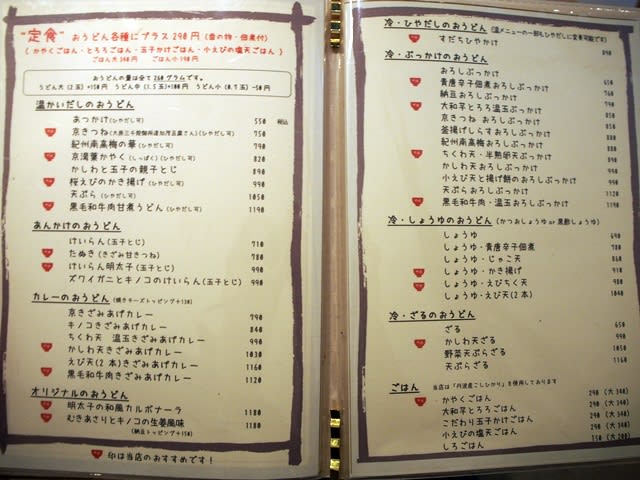 "定食" おうどん各種にプラス290円(香の物・佃煮付)
(かやくごはん・とろろごはん・玉子かけごはん・小えびの塩天ごはん)
ごはん大340円 ごはん小190円
おうどんの量は全て260グラムです。
うどん大(2玉)+150円 うどん中(1.5玉)+100円 うどん小(0.7玉)-50円
温かいだしのおうどん
あつかけ(ひやだし可) 550 税込
京きつね(ひやだし可) 750
紀州南高梅の華(ひやだし可) 790
京湯葉かやく(しっぽく)(ひやだし可) 820
かしわと玉子の親子とじ 890
桜えびのかき揚げ(ひやだし可) 990
天ぷら(ひやだし可) 1050
黒毛和牛肉甘煮うどん(ひやだし可) 1190
あんかけのおうどん
けいらん(玉子とじ) 710
たぬき(きざみ甘きつね) 780
けいらん明太子(玉子とじ) 990
ズワイガニとキノコのけいらん(玉子とじ) 990
カレーのおうどん(焼きチーズトッピング+150)
京きざみあげカレー 790
キノコきざみあげカレー 840
ちくわ天 温玉きざみあげカレー 990
かしわ天きざみあげカレー 1030
えび天(2本)きざみあげカレー 1160
黒毛和牛肉きざみあげカレー 1120
オリジナルのおうどん
明太子の和風カルボナーラ 1180
むきあさりとキノコの生姜風味 1180
(納豆トッピング+150)
印は当店のおすすめです!
冷・ひやだしのおうどん(温メニューの一部もひやだしに変更可能です)
すだちひやかけ 890
冷・ぶっかけのおうどん
おろしぶっかけ 650
青唐辛子佃煮おろしぶっかけ 760
納豆おろしぶっかけ 760
大和芋とろろ温玉ぶっかけ 790
京きつね おろしぶっかけ 850
釜揚げしらすおろしぶっかけ 850
紀州南高梅おろしぶっかけ 880
ちくわ天・半熟卵天ぶっかけ 890
かしわ天おろしぶっかけ 990
小えび天と揚げ餅のおろしぶっかけ 990
天ぷらおろしぶっかけ 1120
黒毛和牛肉・温玉おろしぶっかけ 1190
冷・しょうゆのおうどん(かつおしょうゆor黒酢しょうゆ)
しょうゆ 690
しょうゆ・青唐辛子佃煮 780
しょうゆ・じゃこ天 860
しょうゆ・かき揚げ 910
しょうゆ・えびちく天 990
しょうゆ・えび天(2本) 1040
冷・ざるのおうどん
ざる 650
かしわ天ざる
野菜天ぷらざる
天ぷらざる
ごはん 当店は「丹波産こしひかり」を使用しております
かやくごはん 290 (大340)
大和芋とろろごはん 290 (大340)
こだわり玉子かけごはん 290 (大340)
小えびの塩天ごはん 290 (大340)
しろごはん 150 (大200)